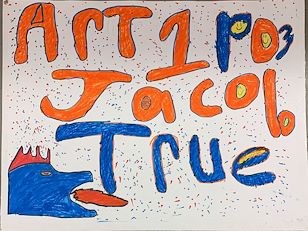 Art 1 PD3
Jacob
True